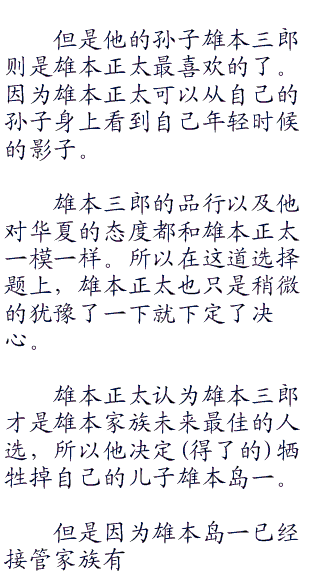 但是他的孙子雄本三郎
则是雄本正太最喜欢的了。
因为雄本正太可以从自己的
孙子身上看到自己年轻时候
的影子。
雄本三郎的品行以及他
对华夏的态度都和雄本正太
一模一样。所以在这道选择
题上，雄本正太也只是稍微
的犹豫了一下就下定了决
心。
雄本正太认为雄本三郎
才是雄本家族未来最佳的人
选，所以他决定(得了的)牺
牲掉自己的儿子雄本岛一。
但是因为雄本岛一已经
接管家族有